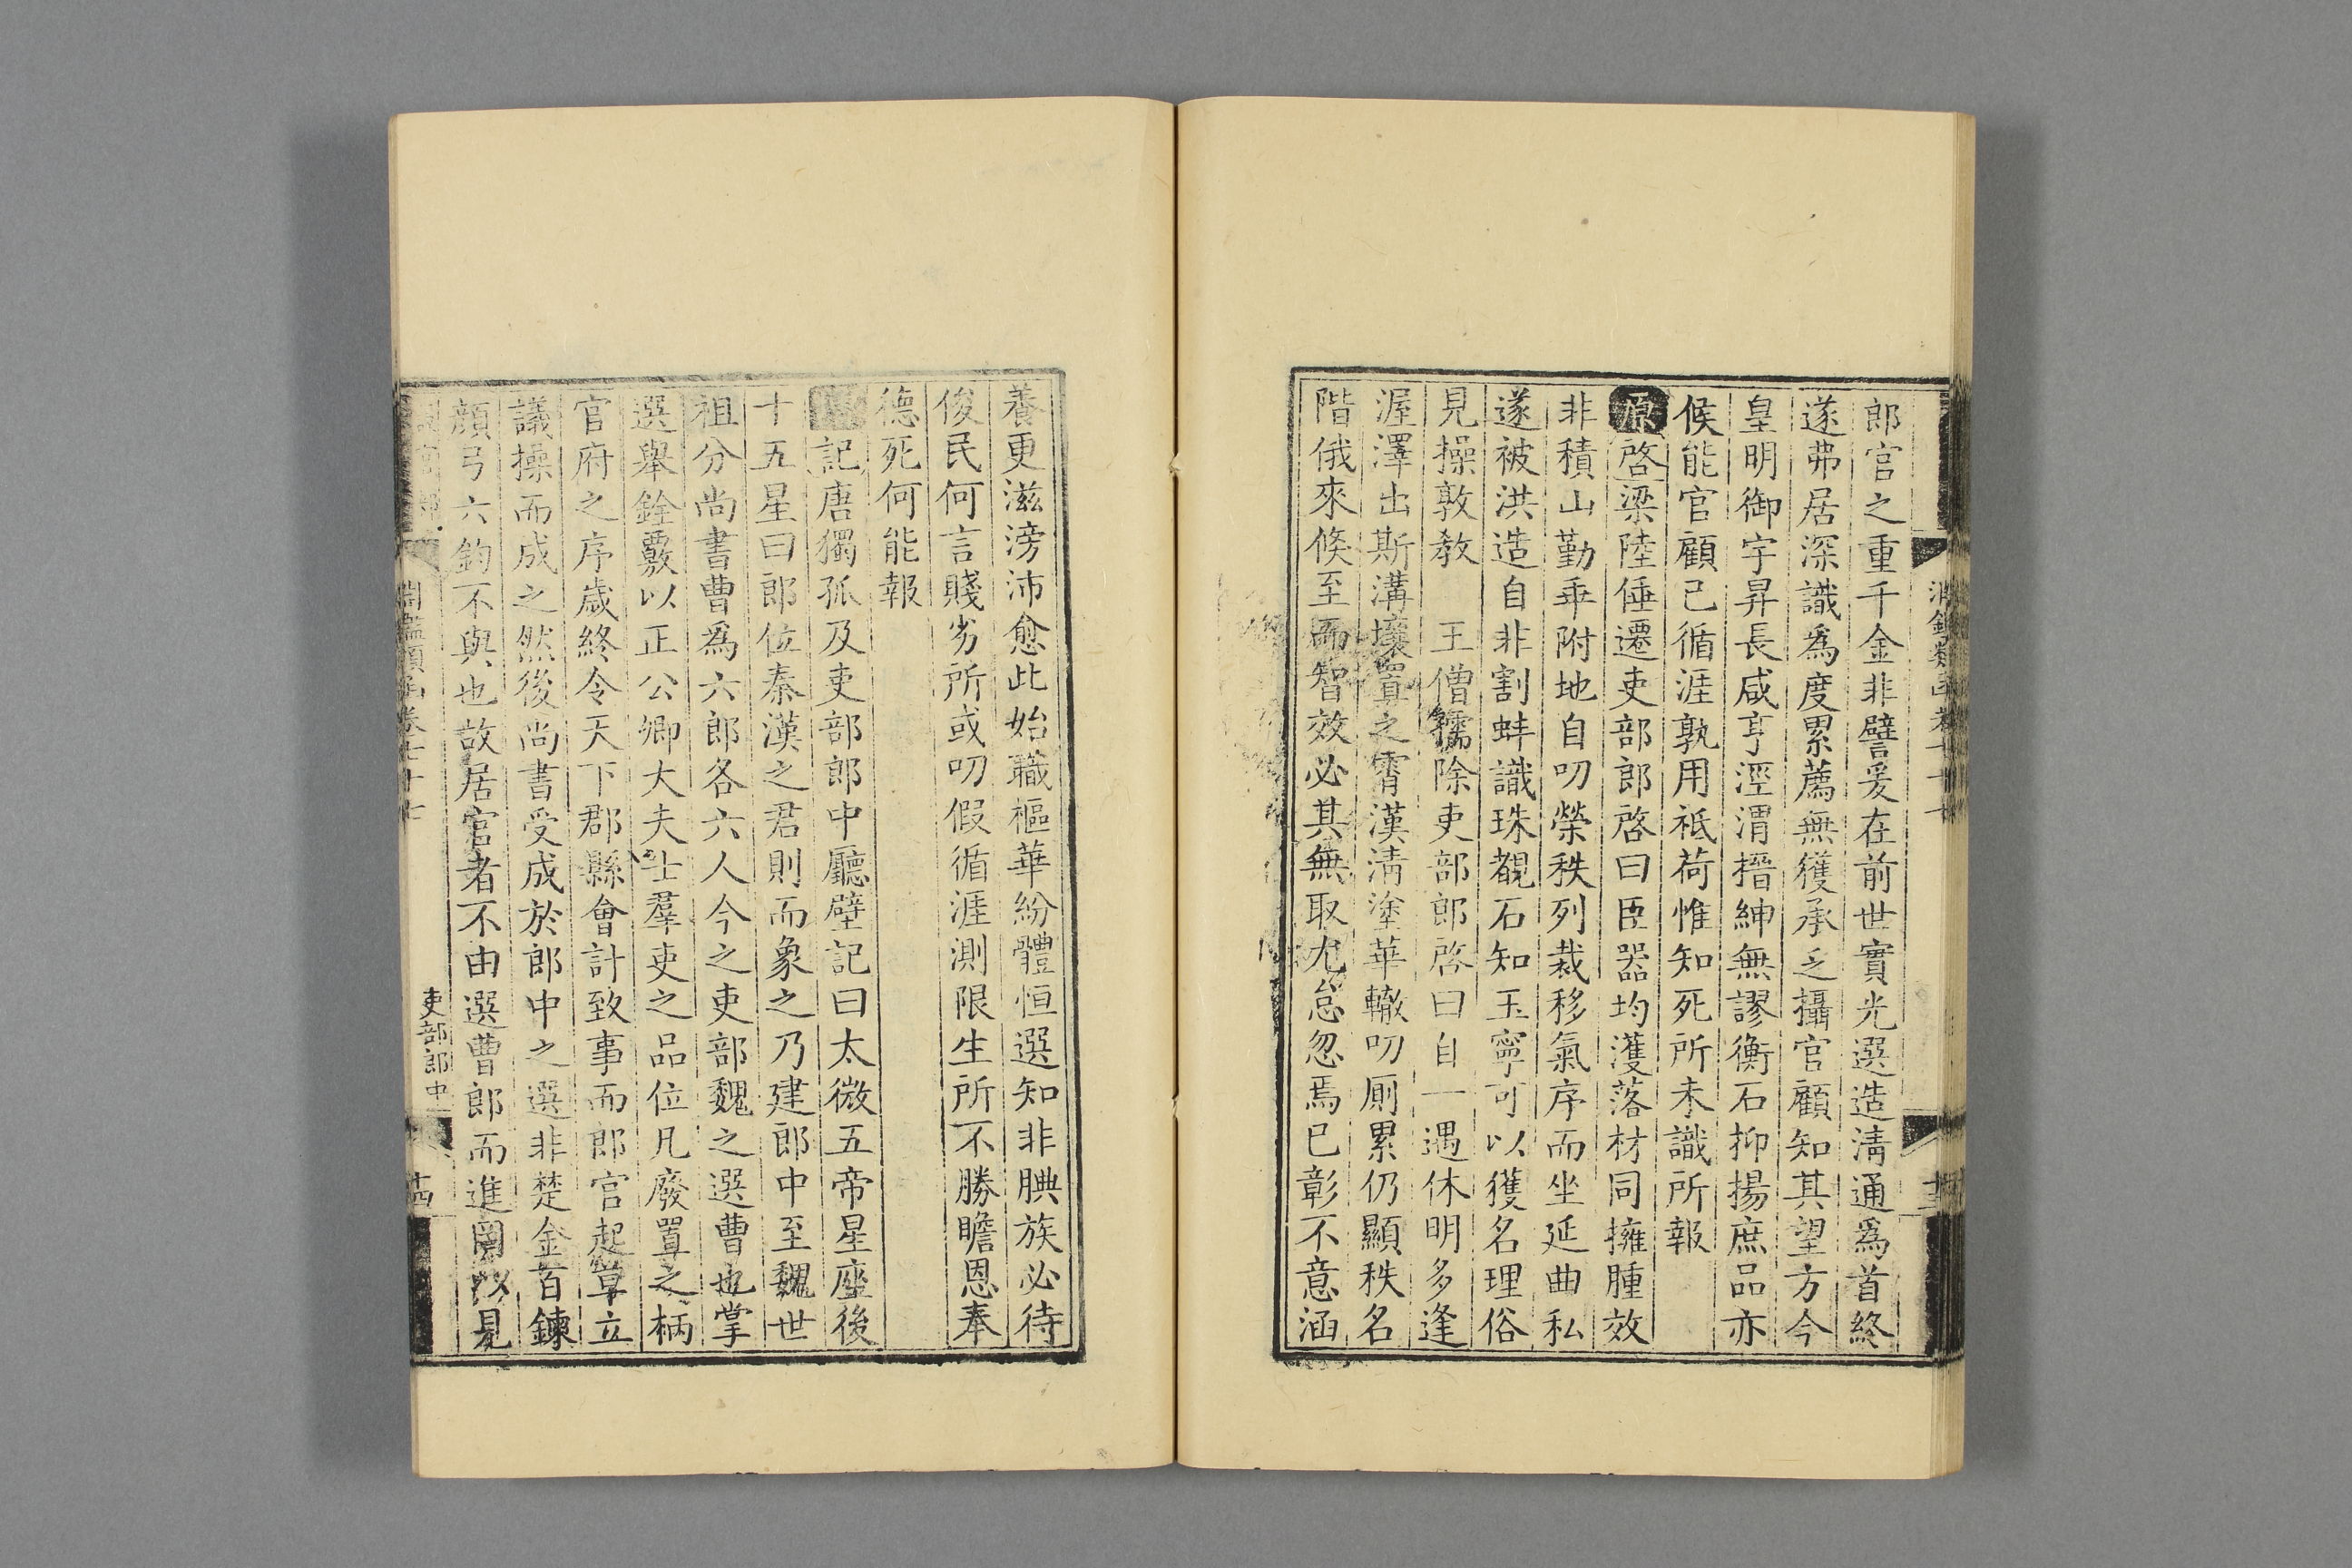 郎官之重千金非譬爰在前世實光選造清通爲首終
遂弗居深識爲度累薦無獲承乏攝官顧知其望方今
皇明御宇昇長咸亨涇渭搢紳無謬衡石抑揚庶品亦
候能官顧己循涯孰用祗荷惟知死所未識所報
原啓梁陸倕遷吏部郎啓曰臣器均濩落材同擁腫效
非積山勤乖附地自叨榮秩列裁移氣序而坐延曲私
遂被洪造自非割蚌識珠覩石知玉寧可以獲名理俗
見操敦敎 王僧孺除吏部郎啓曰自一遇休明多逢
渥澤出斯溝壤寘之霄漢淸塗華轍叨厠累仍顯秩名
階俄來倐至而智效必其無取尤怠忽焉已彰不意涵
養更滋滂沛愈此始職樞華紛體恒選知非腆族必待
俊民何言賤劣所或叨假循涯測限生所不勝瞻恩奉
德死何能報
記唐獨孤及吏部郎中廳壁記曰太微五帝星座後
十五星曰郎位秦漢之君則而象之乃建郎中至魏世
祖分尚書曹爲六郎各六人今之吏部魏之選曹也掌
選舉銓覈以正公卿大夫士羣吏之品位凡廢置之柄
官府之序歲終令天下郡縣會計致事而郎官起草立
議操而成之然後尚書受成於郎中之選非楚金百鍊
顏弓六鈞不與也故居官者不由選曹郎而進罔以見
淵鑑類函卷七十七
吏部郎中
十四